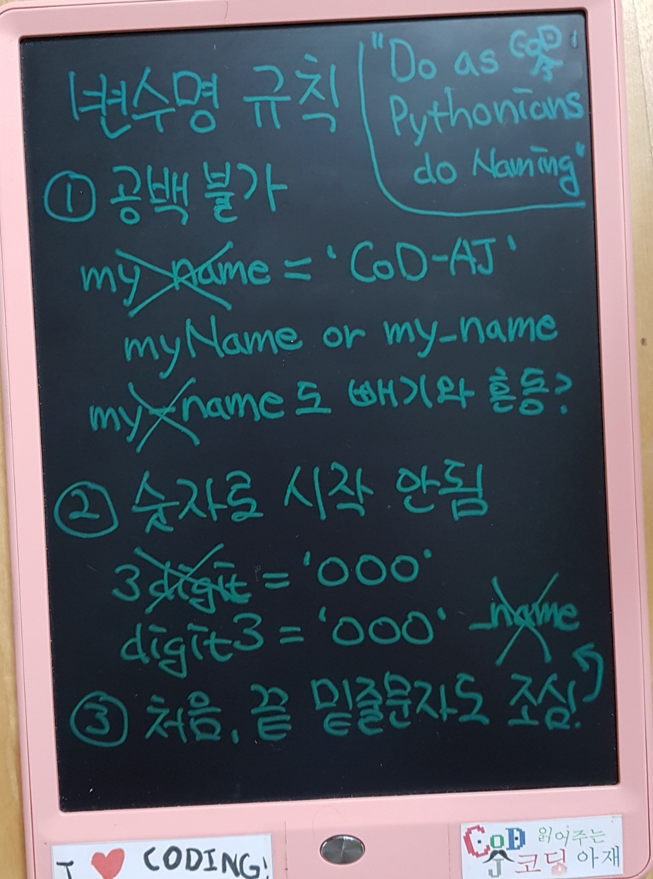 변수명 규칙
"Do as CoD
Pythonians
do Naming"
① 공백 불가
my name = 'CoD-AJ'
myName or my_name
my-name도 빼기와 혼동?
② 숫자로 시작 안됨
3digit = '000'
digit3 = '000' _name
③ 처음, 끝 밑줄문자도 조심!
I ♥ CODING!
CoD 읽어주는
코딩 아재